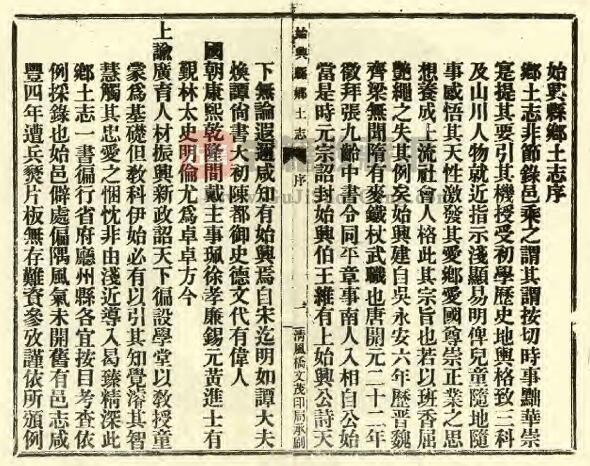 始興縣鄉土志序
鄉土志非節錄邑乘之謂其謂按切時事黜華崇
寔提其要引其機授受初學歷史地輿格致三科
及山川人物就近指示淺顯易明俾兒童隨地隨
事感悟其天性激發其愛鄉愛國尊崇正業之思
想養成上流社會人格此其宗旨也若以班香屈
艷繩之失其例矣始興建自吳永安六年歷晉魏
齊梁無聞隋有麥鐵杖武職也唐開元二十二年
徵拜張九齡中書令同平章事南人入相自公始
當是時元宗詔封始興伯王維有上始興公詩天
始興縣鄉土志
序
一
清風橋文茂印局承刷
下無論遐邇咸知有始興焉自宋迄明如譚大夫
煥譚尙書大初陳都御史德文代有偉人
國朝康熙乾隆間戴主事珮徐孝廉錫元黃進士有
觀林太史明倫尤爲卓卓方今
上諭廣育人材振興新政詔天下徧設學堂以敎授童
蒙爲基礎但敎科伊始必有以引其知覺濬其智
慧觸其忠愛之悃忱非由淺近導入曷臻精深此
鄉土志一書徧行省府廳州縣各宜按目考查依
例採錄也始邑僻處偏隅風氣未開舊有邑志咸
豐四年遭兵燹片板無存難資參攷謹依所頒例